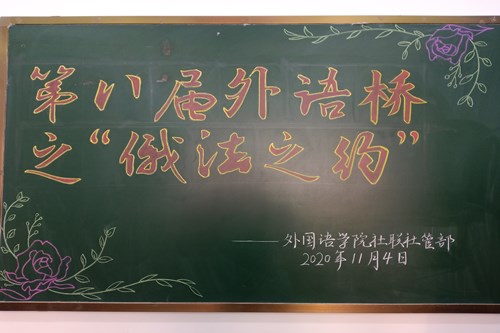 第八届外语桥
之“俄法之约”
——外国语学院社联社管部
2020年11月4日